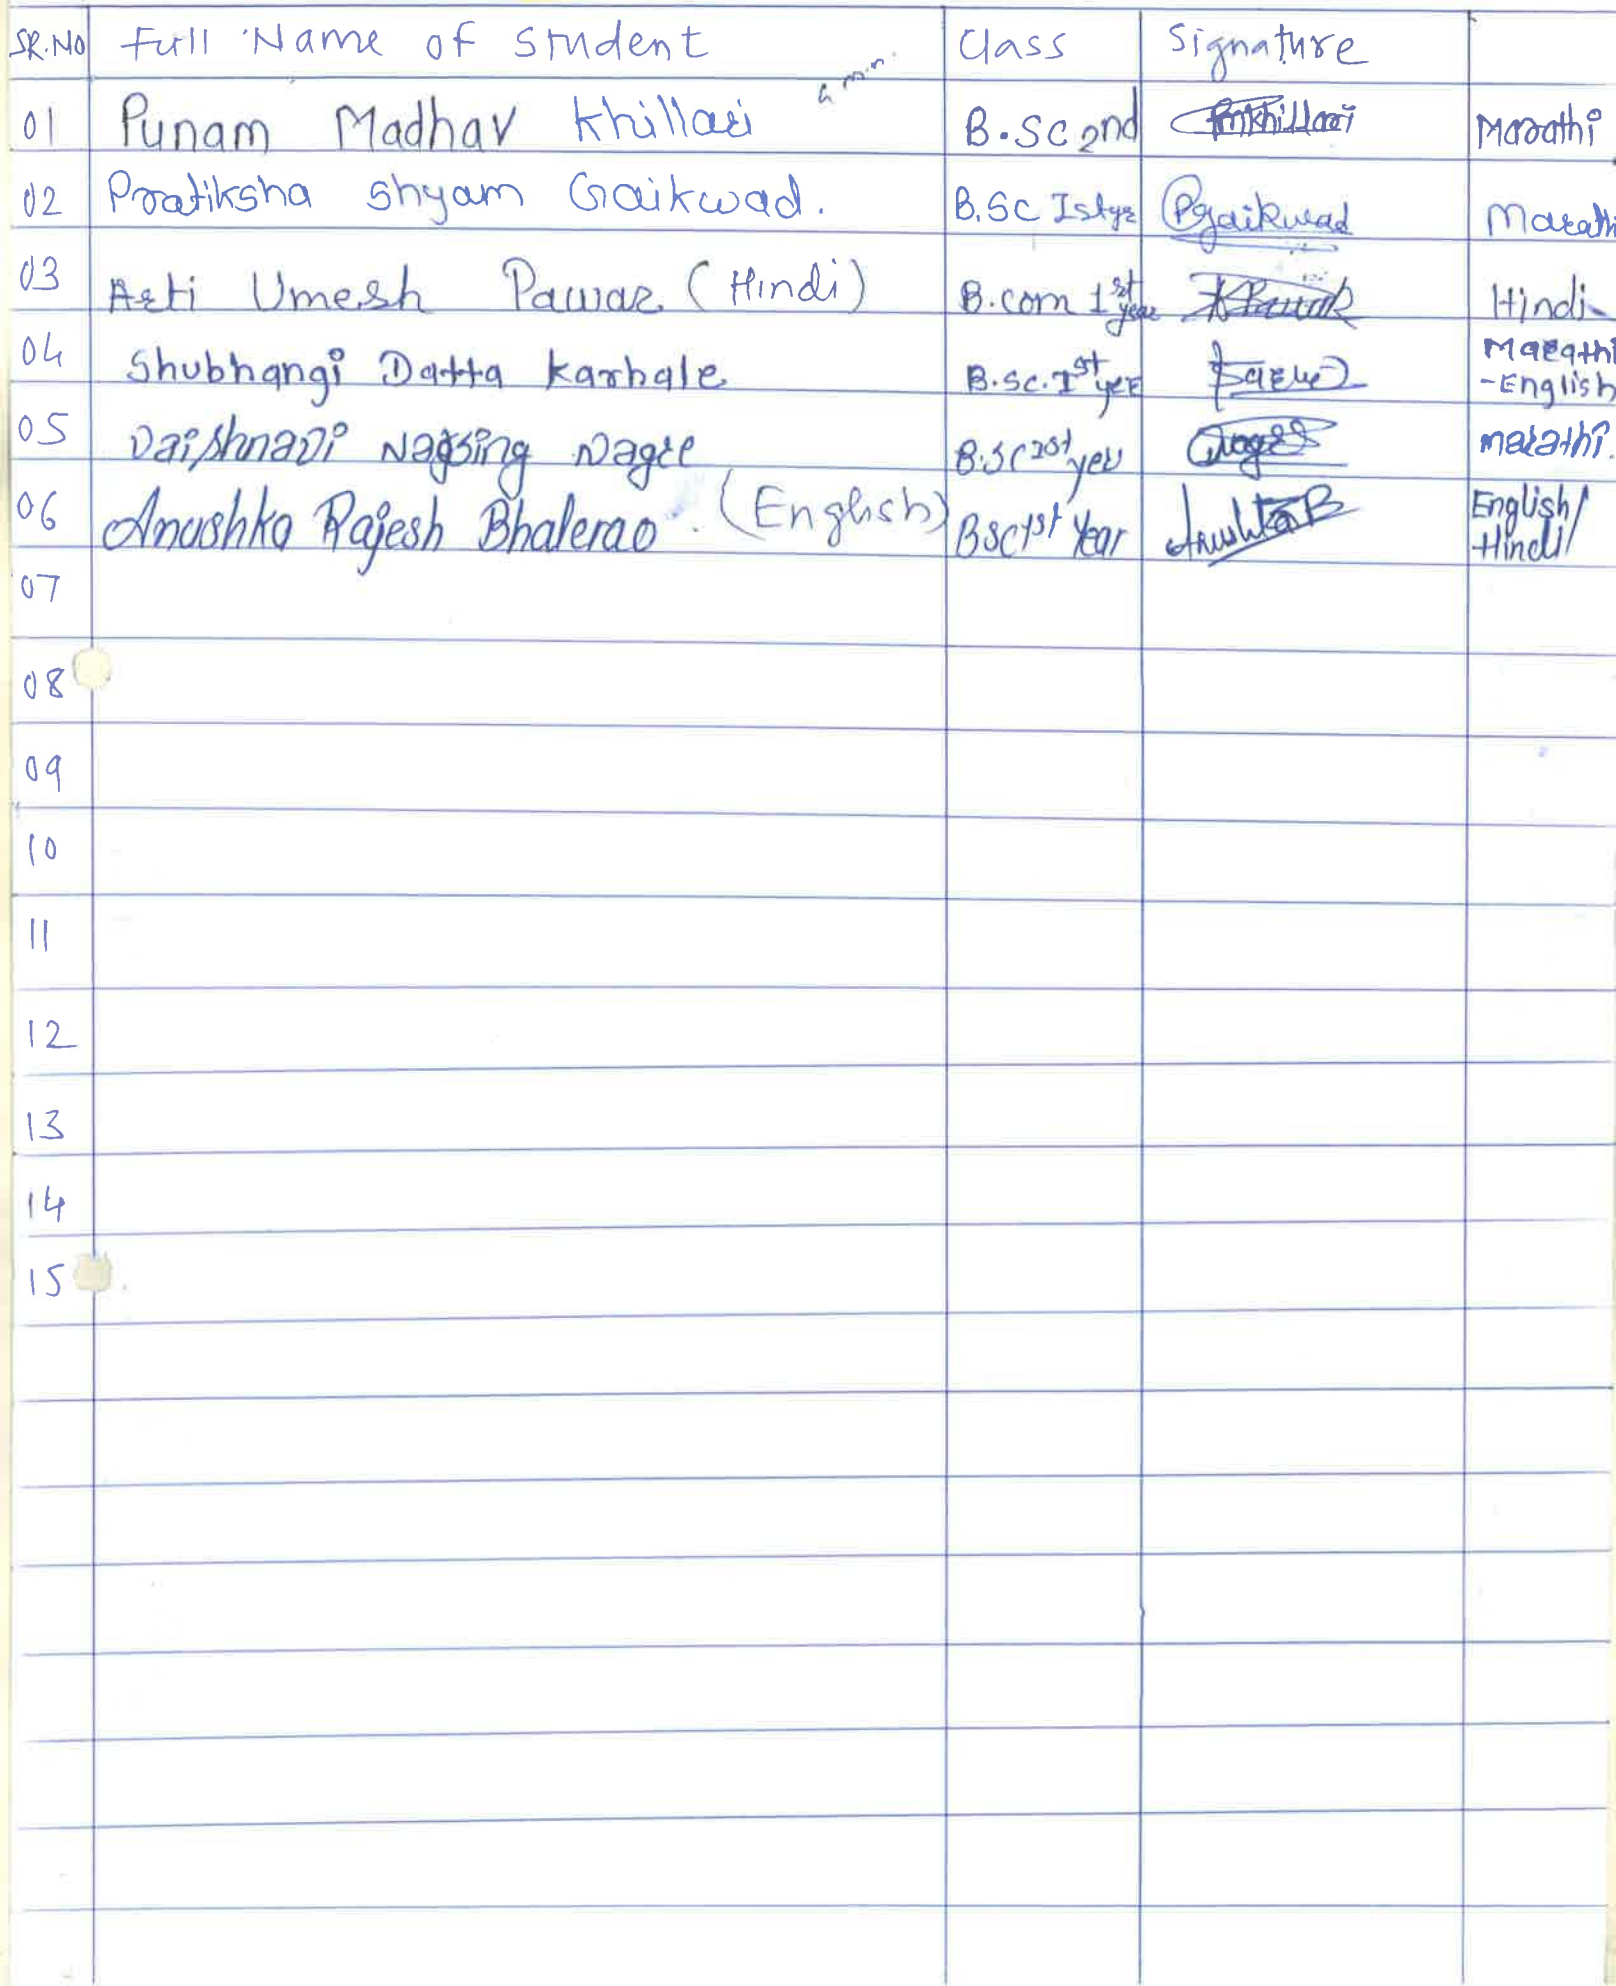 SR.NO Full Name of Student Class Signature
01 Punam Madhav Khillari B.SC 2nd Marathi
02 Pratiksha Shyam Gaikwad. B.SC Ist yr PGaikwad Marathi
03 Arti Umesh Pawar (Hindi) B.com 1st year Hindi
04 Shubhangi Datta Karhale B.SC. Ist yer Marathi
-English
05 Vaishnavi Nagsing B.SC 1st yer Marathi.
06 Anushka Rajesh Bhalerao. (English) BSC 1st Year AnushkaB English/
Hindi/
07
08
09
10
11
12
13
14
15